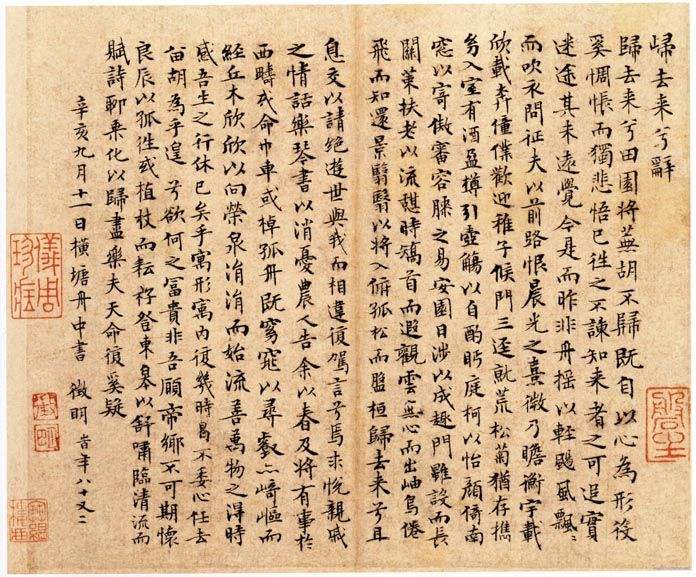 歸去来兮辭
歸去来兮田園將蕪胡不歸既自以心為形役
奚惆悵而獨悲悟已往之不諫知来者之可追實
迷途其未遠覺今是而昨非舟摇以輕颺風飄〻
而吹衣問征夫以前路恨晨光之熹微乃瞻衡宇載
欣載奔僮僕歡迎稚子候門三逕就荒松菊猶存携
幼入室有酒盈樽引壺觴以自酌眄庭柯以怡顔倚南
窓以寄傲審容膝之易安園日涉以成趣門雖設而長
關策扶老以流憩時矯首而遐觀雲無心而出岫鳥倦
飛而知還景翳翳以將入撫孤松而盤桓歸去来兮且
息交以請絶遊世與我而相違復駕言兮焉求悦親戚
之情話樂琴書以消憂農人告余以春及將有事於
西疇或命巾車或棹孤舟既窈窕以尋壑亦崎嶇而
經丘木欣欣以向榮泉涓涓而始流善萬物之得時
感吾生之行休已矣乎寓形寓内復幾時曷不委心任去
留胡為乎遑兮欲何之富貴非吾願帝鄉不可期懷
良辰以孤往或植杖而耘耔登東皋以舒嘯臨清流而
賦詩聊乘化以歸盡樂夫天命復奚疑
辛亥九月十一日横塘舟中書 徵明 旹年八十又二
儀周珍藏
徵明